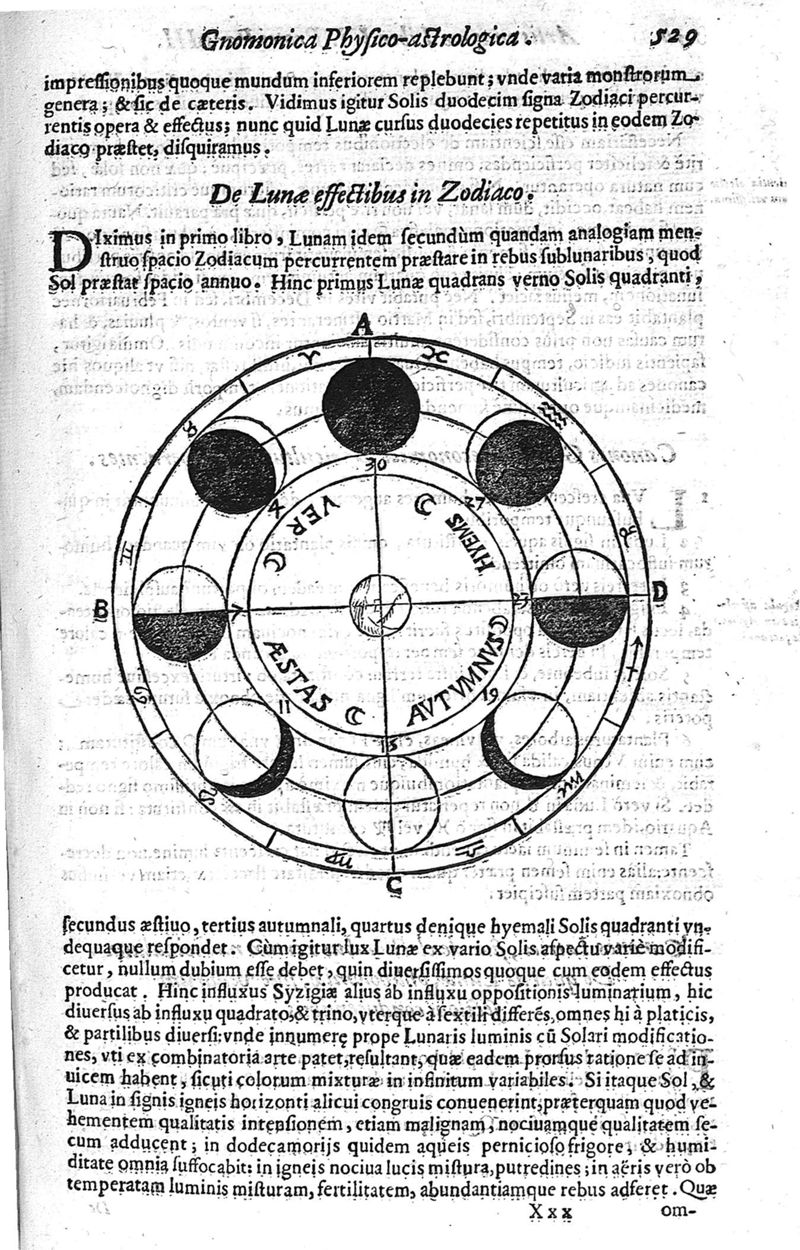 Gnomonica Physico-astrologica. 529
impressionibus quoque mundum inferiorem replebunt; vnde varia monstrorum
genera; & sic de cæteris. Vidimus igitur Solis duodecim signa Zodiaci percur-
rentis opera & effectus; nunc quid Lunæ cursus duodecies repetitus in eodem Zo-
diaco præstet, disquiramus.
De Lunæ effectibus in Zodiaco.
DIximus in primo libro, Lunam idem secundùm quandam analogiam men-
struo spacio Zodiacum percurrentem præstare in rebus sublunaribus, quod
Sol præstat spacio annuo. Hinc primus Lunæ quadrans verno Solis quadranti,
A
♈ ♓
♉ ♒
30
4 27
VER ☾ HYEMS ☾
♊ ♑
B 7 23 D
ÆSTAS ☾ AVTVMNVS ☾
♋ ♐
11 19
15
♌ ♏
♍ ♎
C
secundus æstiuo, tertius autumnali, quartus denique hyemali Solis quadranti vn-
dequaque respondet. Cùm igitur lux Lunæ ex vario Solis aspectu variè modifi-
cetur, nullum dubium esse debet, quin diuersissimos quoque cum eodem effectus
producat. Hinc influxus Syzigiæ alius ab influxu oppositionis luminarium, hic
diuersus ab influxu quadrato, & trino, vterque à sextili differēs, omnes hi à platicis,
& partilibus diuersi: vnde innumerę prope Lunaris luminis cū Solari modificatio-
nes, vti ex combinatoria arte patet, resultant, quæ eadem prorsus ratione se ad in-
uicem habent, sicuti colorum mixturæ in infinitum variabiles. Si itaque Sol, &
Luna in signis igneis horizonti alicui congruis conuenerint, præterquam quod ve-
hementem qualitatis intensionem, etiam malignam, nociuamque qualitatem se-
cum adducent; in dodecamorijs quidem aqueis pernicioso frigore, & humi-
ditate omnia suffocabit: in igneis nociua lucis mistura, putredines; in aëris verò ob
temperatam luminis misturam, fertilitatem, abundantiamque rebus adferet. Quæ
Xxx om-